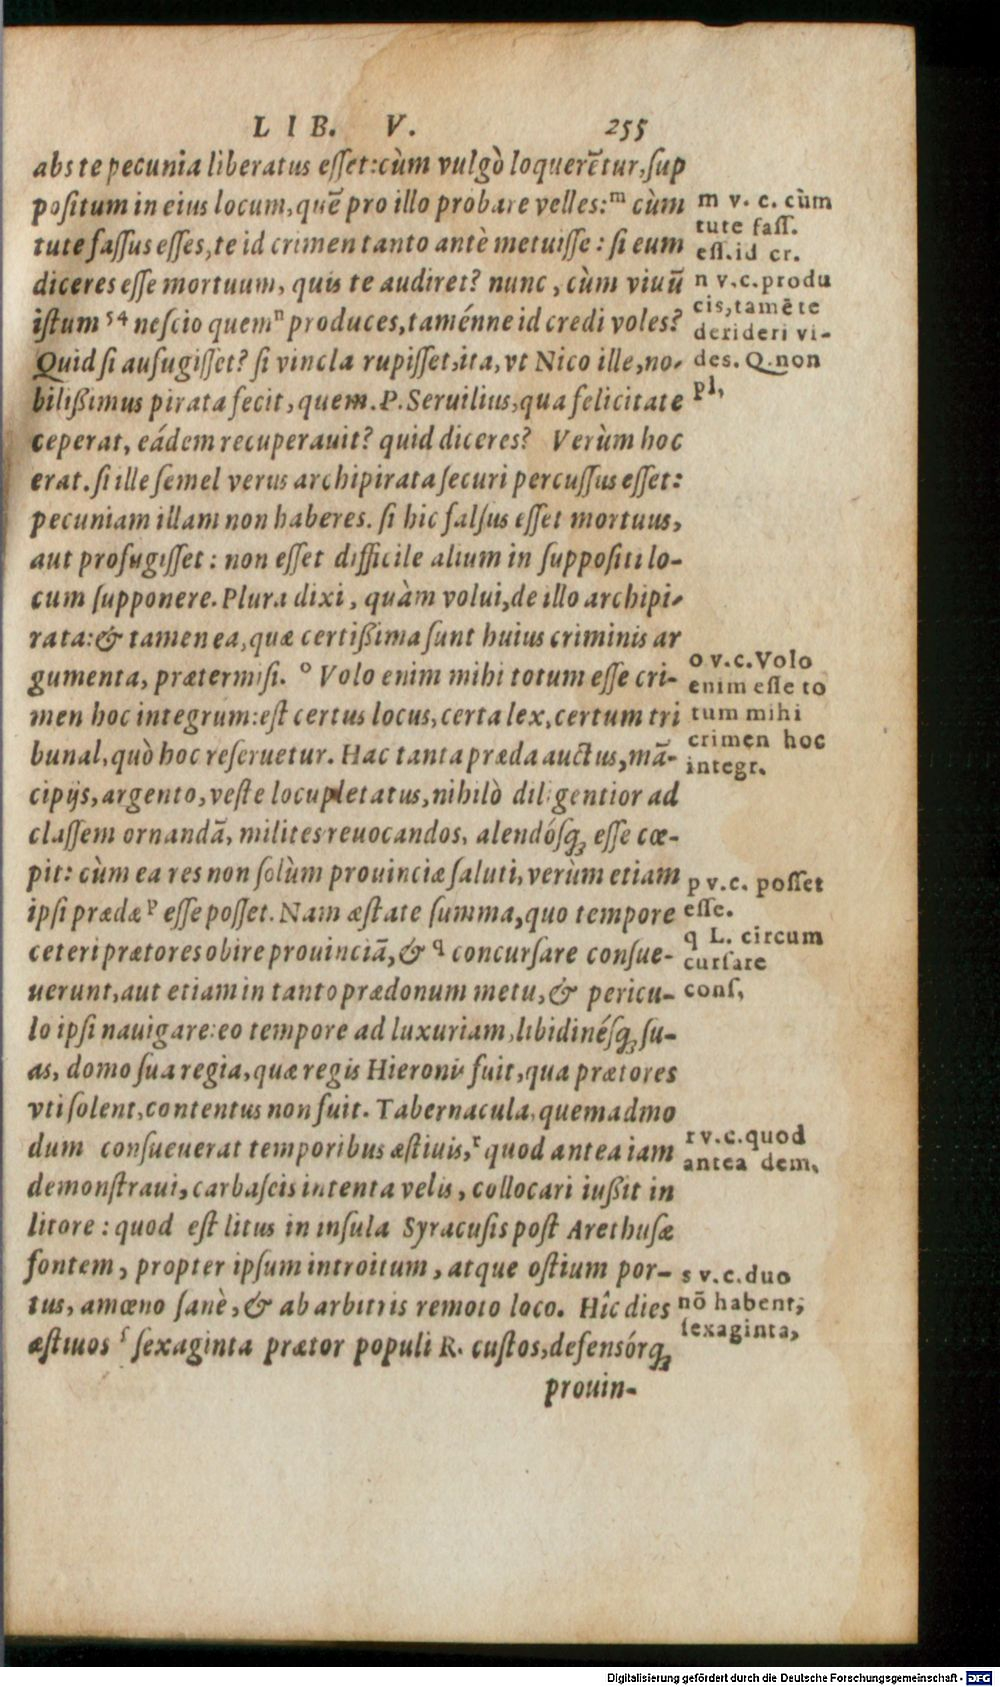 LIB. V. 255
abs te pecunia liberatus eſſet: cùm vulgò loquerētur, ſup
poſitum in eius locum, quē pro illo probare velles: ᵐ cùm
tute faſſus eſſes, te id crimen tanto antè metuiſſe: ſi eum
diceres eſſe mortuum, quis te audiret? nunc, cùm viuū
iſtum ⁵⁴ neſcio quem ⁿ produces, taménne id credi voles?
Quid ſi aufugiſſet? ſi vincla rupiſſet, ita, vt Nico ille, no-
bilißimus pirata fecit, quem. P. Seruilius, qua felicitate
ceperat, eádem recuperauit? quid diceres? Verùm hoc
erat. ſi ille ſemel verus archipirata ſecuri percuſſus eſſet:
pecuniam illam non haberes. ſi hic falſus eſſet mortuus,
aut profugiſſet: non eſſet difficile alium in ſuppoſiti lo-
cum ſupponere. Plura dixi, quàm volui, de illo archipi-
rata: & tamen ea, quæ certißima ſunt huius criminis ar
gumenta, prætermiſi. ᵒ Volo enim mihi totum eſſe cri-
men hoc integrum: eſt certus locus, certa lex, certum tri
bunal, quò hoc reſeruetur. Hac tanta præda auctus, mā-
cipijs, argento, veſte locupletatus, nihilò diligentior ad
claſſem ornandā, milites reuocandos, alendóſq́ꝫ eſſe cœ-
pit: cùm ea res non ſolùm prouinciæ ſaluti, verùm etiam
ipſi prædæ ᵖ eſſe poſſet. Nam æſtate ſumma, quo tempore
ceteri prætores obire prouinciā, & ᑫ concurſare conſue-
uerunt, aut etiam in tanto prædonum metu, & pericu-
lo ipſi nauigare: eo tempore ad luxuriam, libidinéſq́ꝫ ſu-
as, domo ſua regia, quæ regis Hieronis fuit, qua prætores
vti ſolent, contentus non fuit. Tabernacula, quemadmo
dum conſueuerat temporibus æſtiuis, ʳ quod antea iam
demonſtraui, carbaſeis intenta velis, collocari iußit in
litore: quod eſt litus in inſula Syracuſis poſt Arethuſæ
fontem, propter ipſum introitum, atque oſtium por-
tus, amœno ſanè, & ab arbitris remoto loco. Hîc dies
æſtiuos ˢ ſexaginta prætor populi R. cuſtos, defenſórq́ꝫ
prouin-
m v. c. cùm
tute faſſ.
eſſ. id cr.
n v. c. produ
cis, tamē te
derideri vi-
des. Q. non
pl,
o v. c. Volo
enim eſſe to
tum mihi
crimen hoc
integr.
p v. c. poſſet
eſſe.
q L. circum
curſare
conſ,
r v. c. quod
antea dem,
s v. c. duo
nō habent,
ſexaginta,
Digitalisierung gefördert durch die Deutsche Forschungsgemeinschaft - DFG